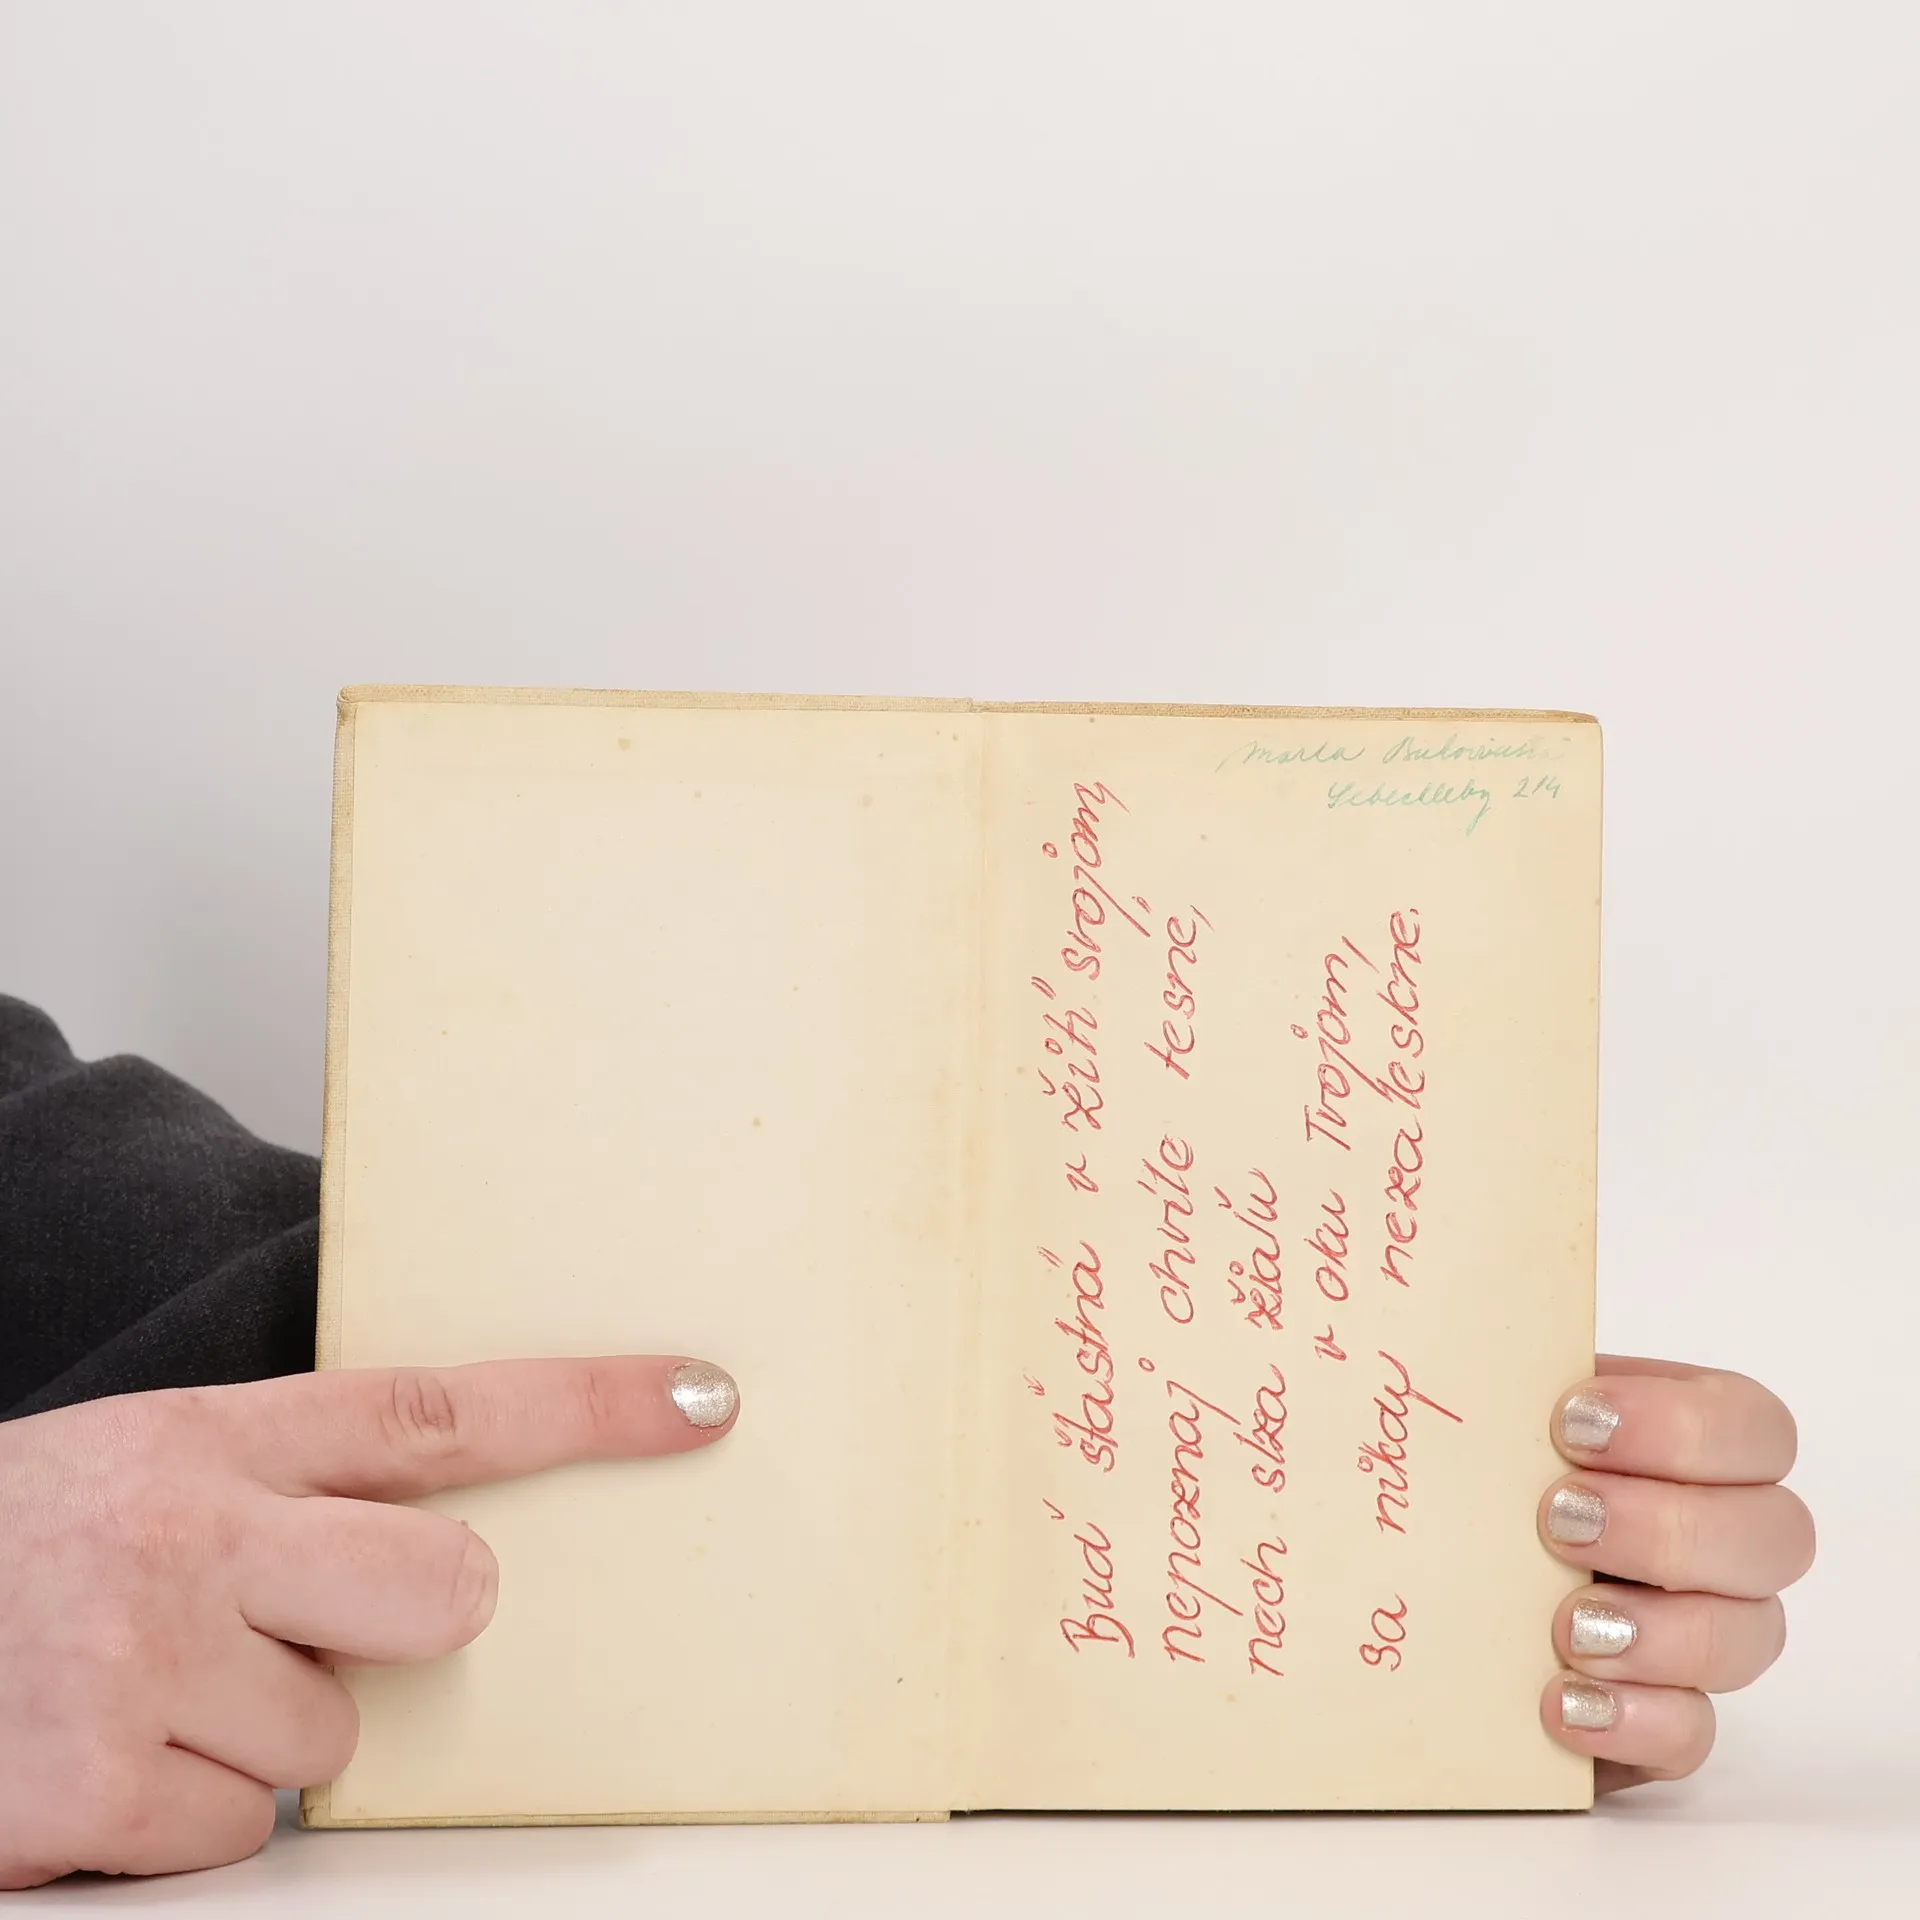 Marta
Sebechleby 214
Buď šťastná v žití svojom,
nepoznaj chvíle tesné,
nech slza žiaľu
v oku Tvojom,
sa nikdy nezaleskne.